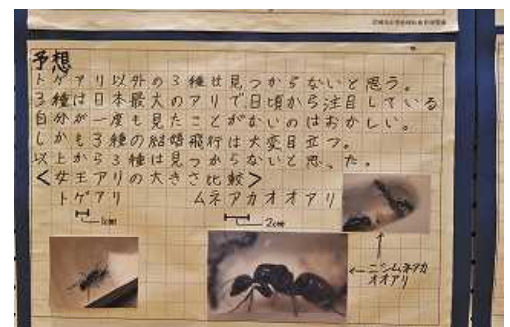 予想
トゲアリ以外の3種は見つからないと思う。
3種は日本最大のアリで、日頃から注目している
自分が一度も見たことがないのはおかしい。
しかも3種の結婚飛行は大変目立つ。
以上から3種は見つからないと思った。
<女王アリの大きさ比較>
トゲアリ ムネアカオオアリ
1cm 2cm
←ニシムネアカ
オオアリ